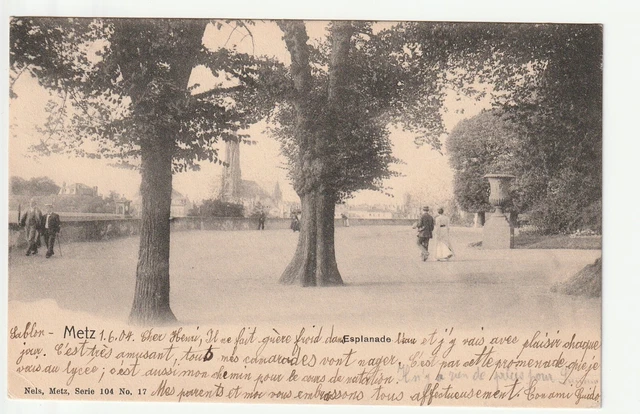 Sablon - Metz 1.6.04. Cher Henri, Il ne fait guère froid dans l'eau et j'y vais avec plaisir chaque
Esplanade
jour. C'est très amusant, tous mes camarades vont nager. C'est par cette promenade que je
vais au lycée; c'est aussi mon chemin pour le cours de natation.
Nels, Metz, Serie 104 No. 17
Mes parents et moi vous embrassons tous affectueusement. Ton ami Guido